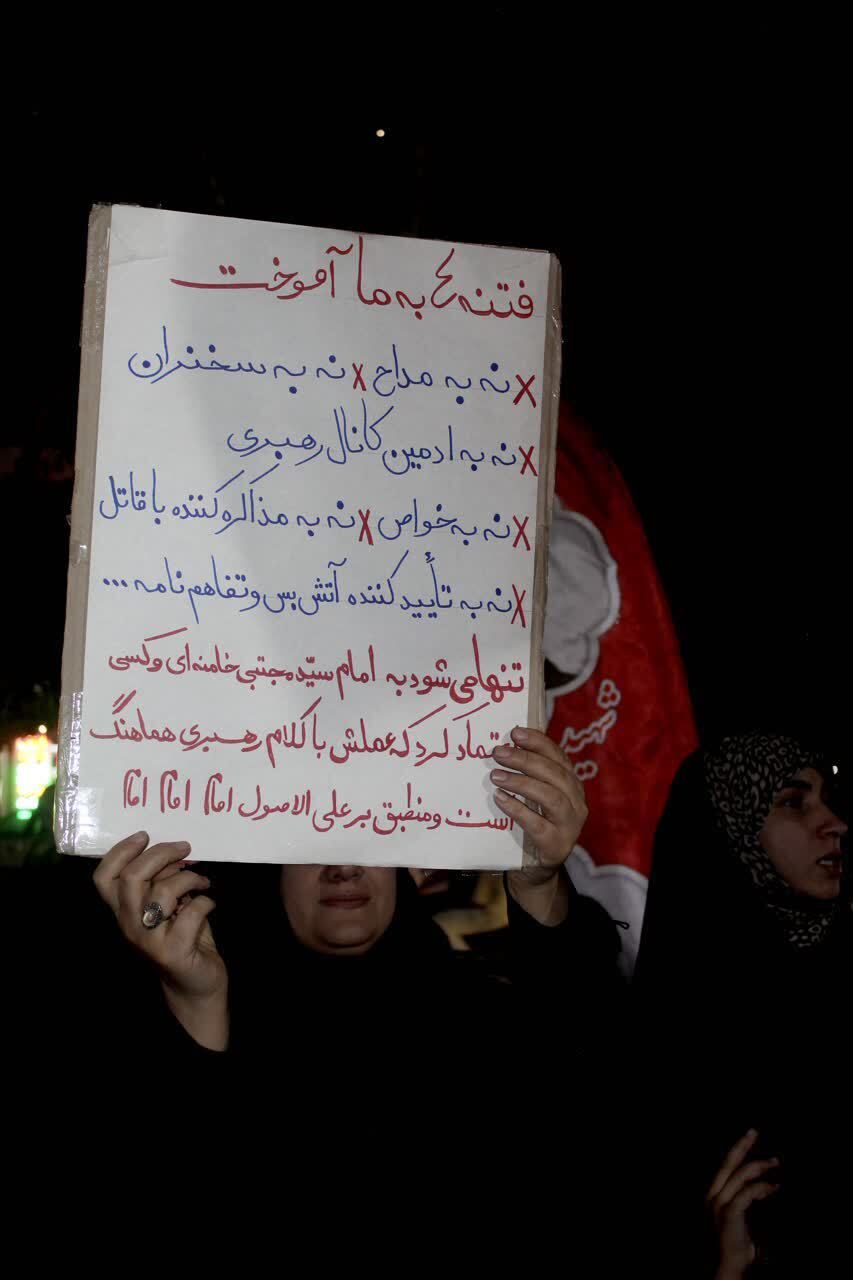 فتنه لح به ما آموخت
X نه به مداح X نه به سخنران
X نه به ادمین کانال رهبری
X نه به خواص X نه به مذاکره کننده با قاتل
X نه به تأیید کننده آتش بس و تفاهم نامه ...
تنها می شود به امام سیّد مجتبی خامنه ای و کسی
اعتماد کرد که عملش با کلام رهبری هماهنگ
است و منطبق بر علی الاصول امّا امّا امّا
شهید